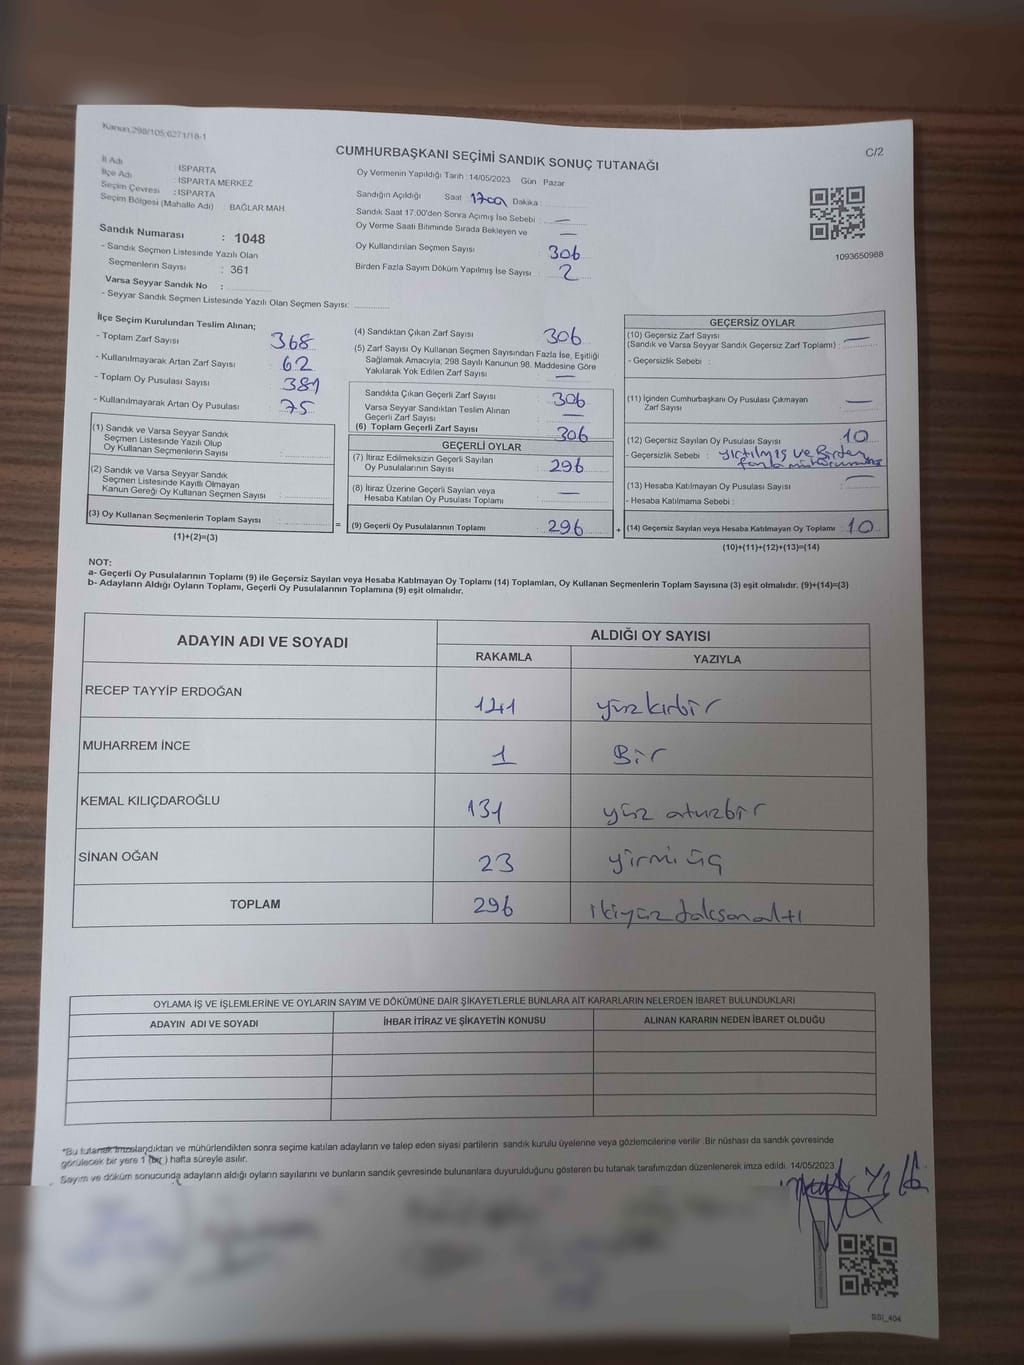 Kanun:298/105;6271/18-1
CUMHURBAŞKANI SEÇİMİ SANDIK SONUÇ TUTANAĞI
C/2
İl Adı : ISPARTA
İlçe Adı : ISPARTA MERKEZ
Seçim Çevresi : ISPARTA
Seçim Bölgesi (Mahalle Adı) : BAĞLAR MAH.
Oy Vermenin Yapıldığı Tarih : 14/05/2023 Gün : Pazar
Sandığın Açıldığı Saat 1700 Dakika :
Sandık Saat 17:00'den Sonra Açımış İse Sebebi : —
Oy Verme Saati Bitiminde Sırada Bekleyen ve —
Oy Kullandırılan Seçmen Sayısı 306
Birden Fazla Sayım Döküm Yapılmış İse Sayısı : 2
1093650988
Sandık Numarası : 1048
- Sandık Seçmen Listesinde Yazılı Olan
Seçmenlerin Sayısı : 361
Varsa Seyyar Sandık No :
- Seyyar Sandık Seçmen Listesinde Yazılı Olan Seçmen Sayısı:
İlçe Seçim Kurulundan Teslim Alınan;
- Toplam Zarf Sayısı : 368
- Kullanılmayarak Artan Zarf Sayısı : 62
- Toplam Oy Pusulası Sayısı : 381
- Kullanılmayarak Artan Oy Pusulası : 75
(1) Sandık ve Varsa Seyyar Sandık
Seçmen Listesinde Yazılı Olup
Oy Kullanan Seçmenlerin Sayısı :
(2) Sandık ve Varsa Seyyar Sandık
Seçmen Listesinde Kayıtlı Olmayan
Kanun Gereği Oy Kullanan Seçmen Sayısı :
(3) Oy Kullanan Seçmenlerin Toplam Sayısı :
(1)+(2)=(3)
=
(4) Sandıktan Çıkan Zarf Sayısı : 306
(5) Zarf Sayısı Oy Kullanan Seçmen Sayısından Fazla İse, Eşitliği
Sağlamak Amacıyla; 298 Sayılı Kanunun 98. Maddesine Göre
Yakılarak Yok Edilen Zarf Sayısı : —
Sandıkta Çıkan Geçerli Zarf Sayısı : 306
Varsa Seyyar Sandıktan Teslim Alınan
Geçerli Zarf Sayısı : —
(6) Toplam Geçerli Zarf Sayısı : 306
GEÇERLİ OYLAR
(7) İtiraz Edilmeksizin Geçerli Sayılan
Oy Pusulalarının Sayısı : 296
(8) İtiraz Üzerine Geçerli Sayılan veya
Hesaba Katılan Oy Pusulası Toplamı : —
(9) Geçerli Oy Pusulalarının Toplamı : 296
+
GEÇERSİZ OYLAR
(10) Geçersiz Zarf Sayısı
(Sandık ve Varsa Seyyar Sandık Geçersiz Zarf Toplamı) : —
- Geçersizlik Sebebi :
(11) İçinden Cumhurbaşkanı Oy Pusulası Çıkmayan
Zarf Sayısı —
(12) Geçersiz Sayılan Oy Pusulası Sayısı : 10
- Geçersizlik Sebebi : yırtılmış ve Birden
fazla
(13) Hesaba Katılmayan Oy Pusulası Sayısı : —
- Hesaba Katılmama Sebebi :
(14) Geçersiz Sayılan veya Hesaba Katılmayan Oy Toplamı : 10
(10)+(11)+(12)+(13)=(14)
NOT:
a- Geçerli Oy Pusulalarının Toplamı (9) ile Geçersiz Sayılan veya Hesaba Katılmayan Oy Toplamı (14) Toplamları, Oy Kullanan Seçmenlerin Toplam Sayısına (3) eşit olmalıdır. (9)+(14)=(3)
b- Adayların Aldığı Oyların Toplamı, Geçerli Oy Pusulalarının Toplamına (9) eşit olmalıdır.
ADAYIN ADI VE SOYADI
ALDIĞI OY SAYISI
RAKAMLA YAZIYLA
RECEP TAYYİP ERDOĞAN 141 yüzkırbir
MUHARREM İNCE 1 Bir
KEMAL KILIÇDAROĞLU 131 yüz otuzbir
SİNAN OĞAN 23 yirmi üç
TOPLAM 296 ikiyüz doksanaltı
OYLAMA İŞ VE İŞLEMLERİNE VE OYLARIN SAYIM VE DÖKÜMÜNE DAİR ŞİKAYETLERLE BUNLARA AİT KARARLARIN NELERDEN İBARET BULUNDUKLARI
ADAYIN ADI VE SOYADI İHBAR İTİRAZ VE ŞİKAYETİN KONUSU ALINAN KARARIN NEDEN İBARET OLDUĞU
*Bu tutanak imzalandıktan ve mühürlendikten sonra seçime katılan adayların ve talep eden siyasi partilerin sandık kurulu üyelerine veya gözlemcilerine verilir. Bir nüshası da sandık çevresinde
görülecek bir yere 1 (bir) hafta süreyle asılır.
Sayım ve döküm sonucunda adayların aldığı oyların sayılarını ve bunların sandık çevresinde bulunanlara duyurulduğunu gösteren bu tutanak tarafımızdan düzenlenerek imza edildi. 14/05/2023
SSI_404